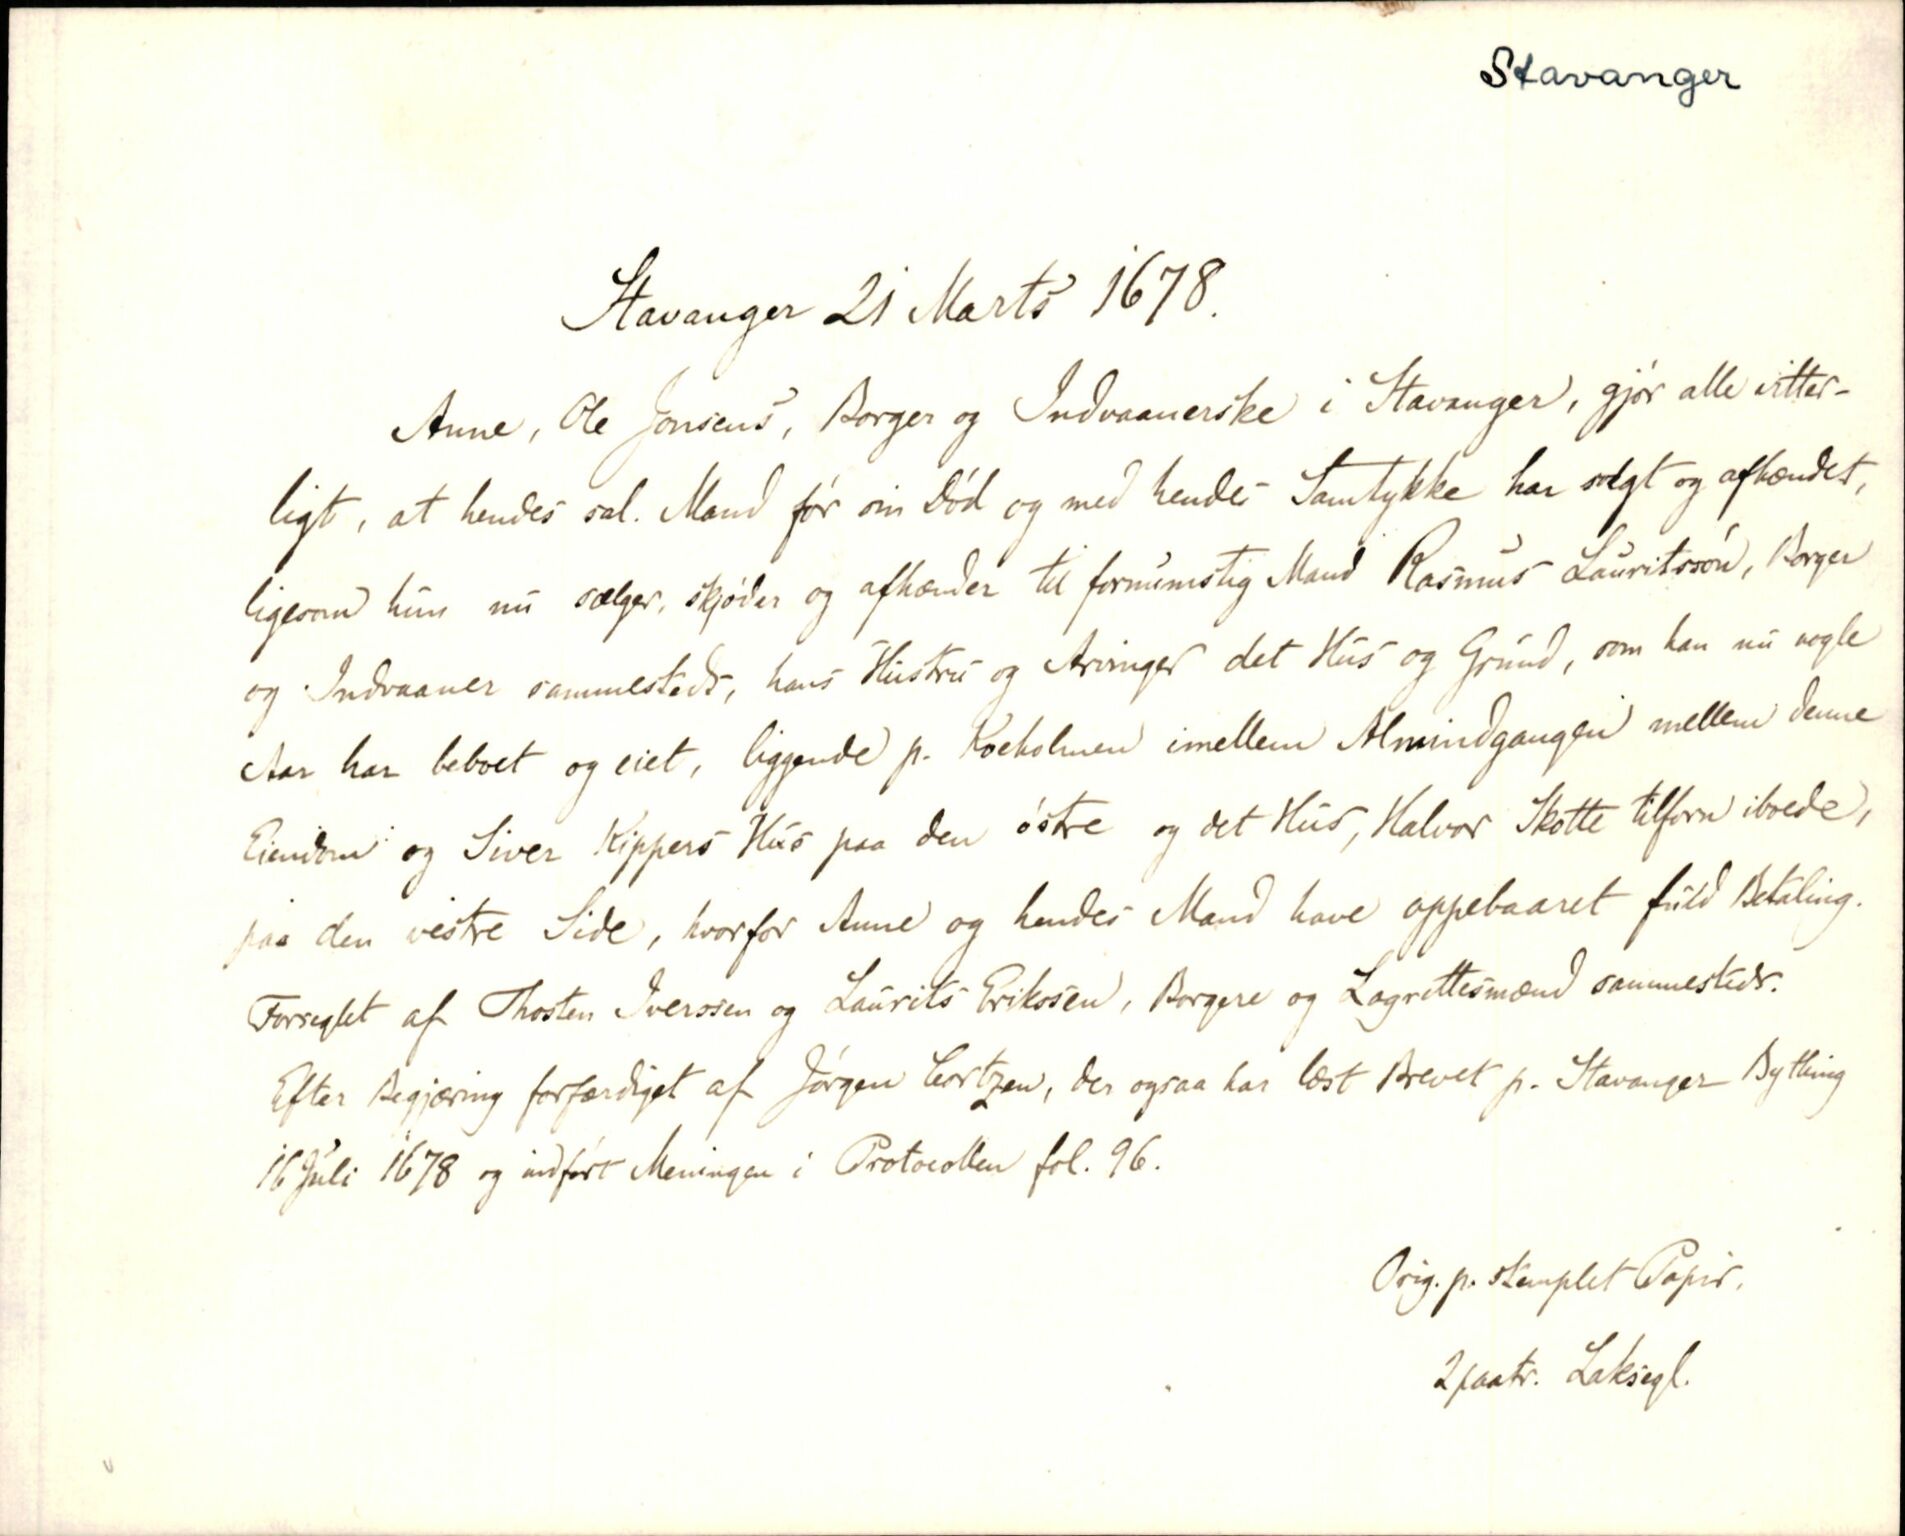 Stavanger
Stavanger 21 Marts 1678.
Anne, Ole Jonsens, Borger og Indvaanerske i Stavanger, gjór alle vitter-
ligt, at hendes sal. Mand fór sin Dód og med hendes Samtykke har solgt og afhændet,
ligesom hun nu sælger, skjóder og afhænder til fornumstig Mand Rasmus Lauritssón, Borger
og Indvaaner sammesteds, hans Hustru og Arvinger det Hus og Grund, som han nu nogle
Aar har beboet og eiet, liggende p. Koeholmen imellem Almindgangen mellem denne
Eiendom og Siver Kippers Hus paa den óstre og det Hus, Halvor Skotte tilforn iboede,
paa den vestre Side, hvorfor Anne og hendes Mand have oppebaaret fuld Betaling.
Forseglet af Thosten Iverssen og Laurits Erikssen, Borgere og Lagrettesmænd sammesteds.
Efter Begjæring forfærdiget af Jórgen Cortzen, der ogsaa har læst Brevet p. Stavanger Bything
16 Juli 1678 og indfórt Meningen i Protocollen fol. 96.
Orig. p. stemplet Papir.
2 paatr. Laksegl.